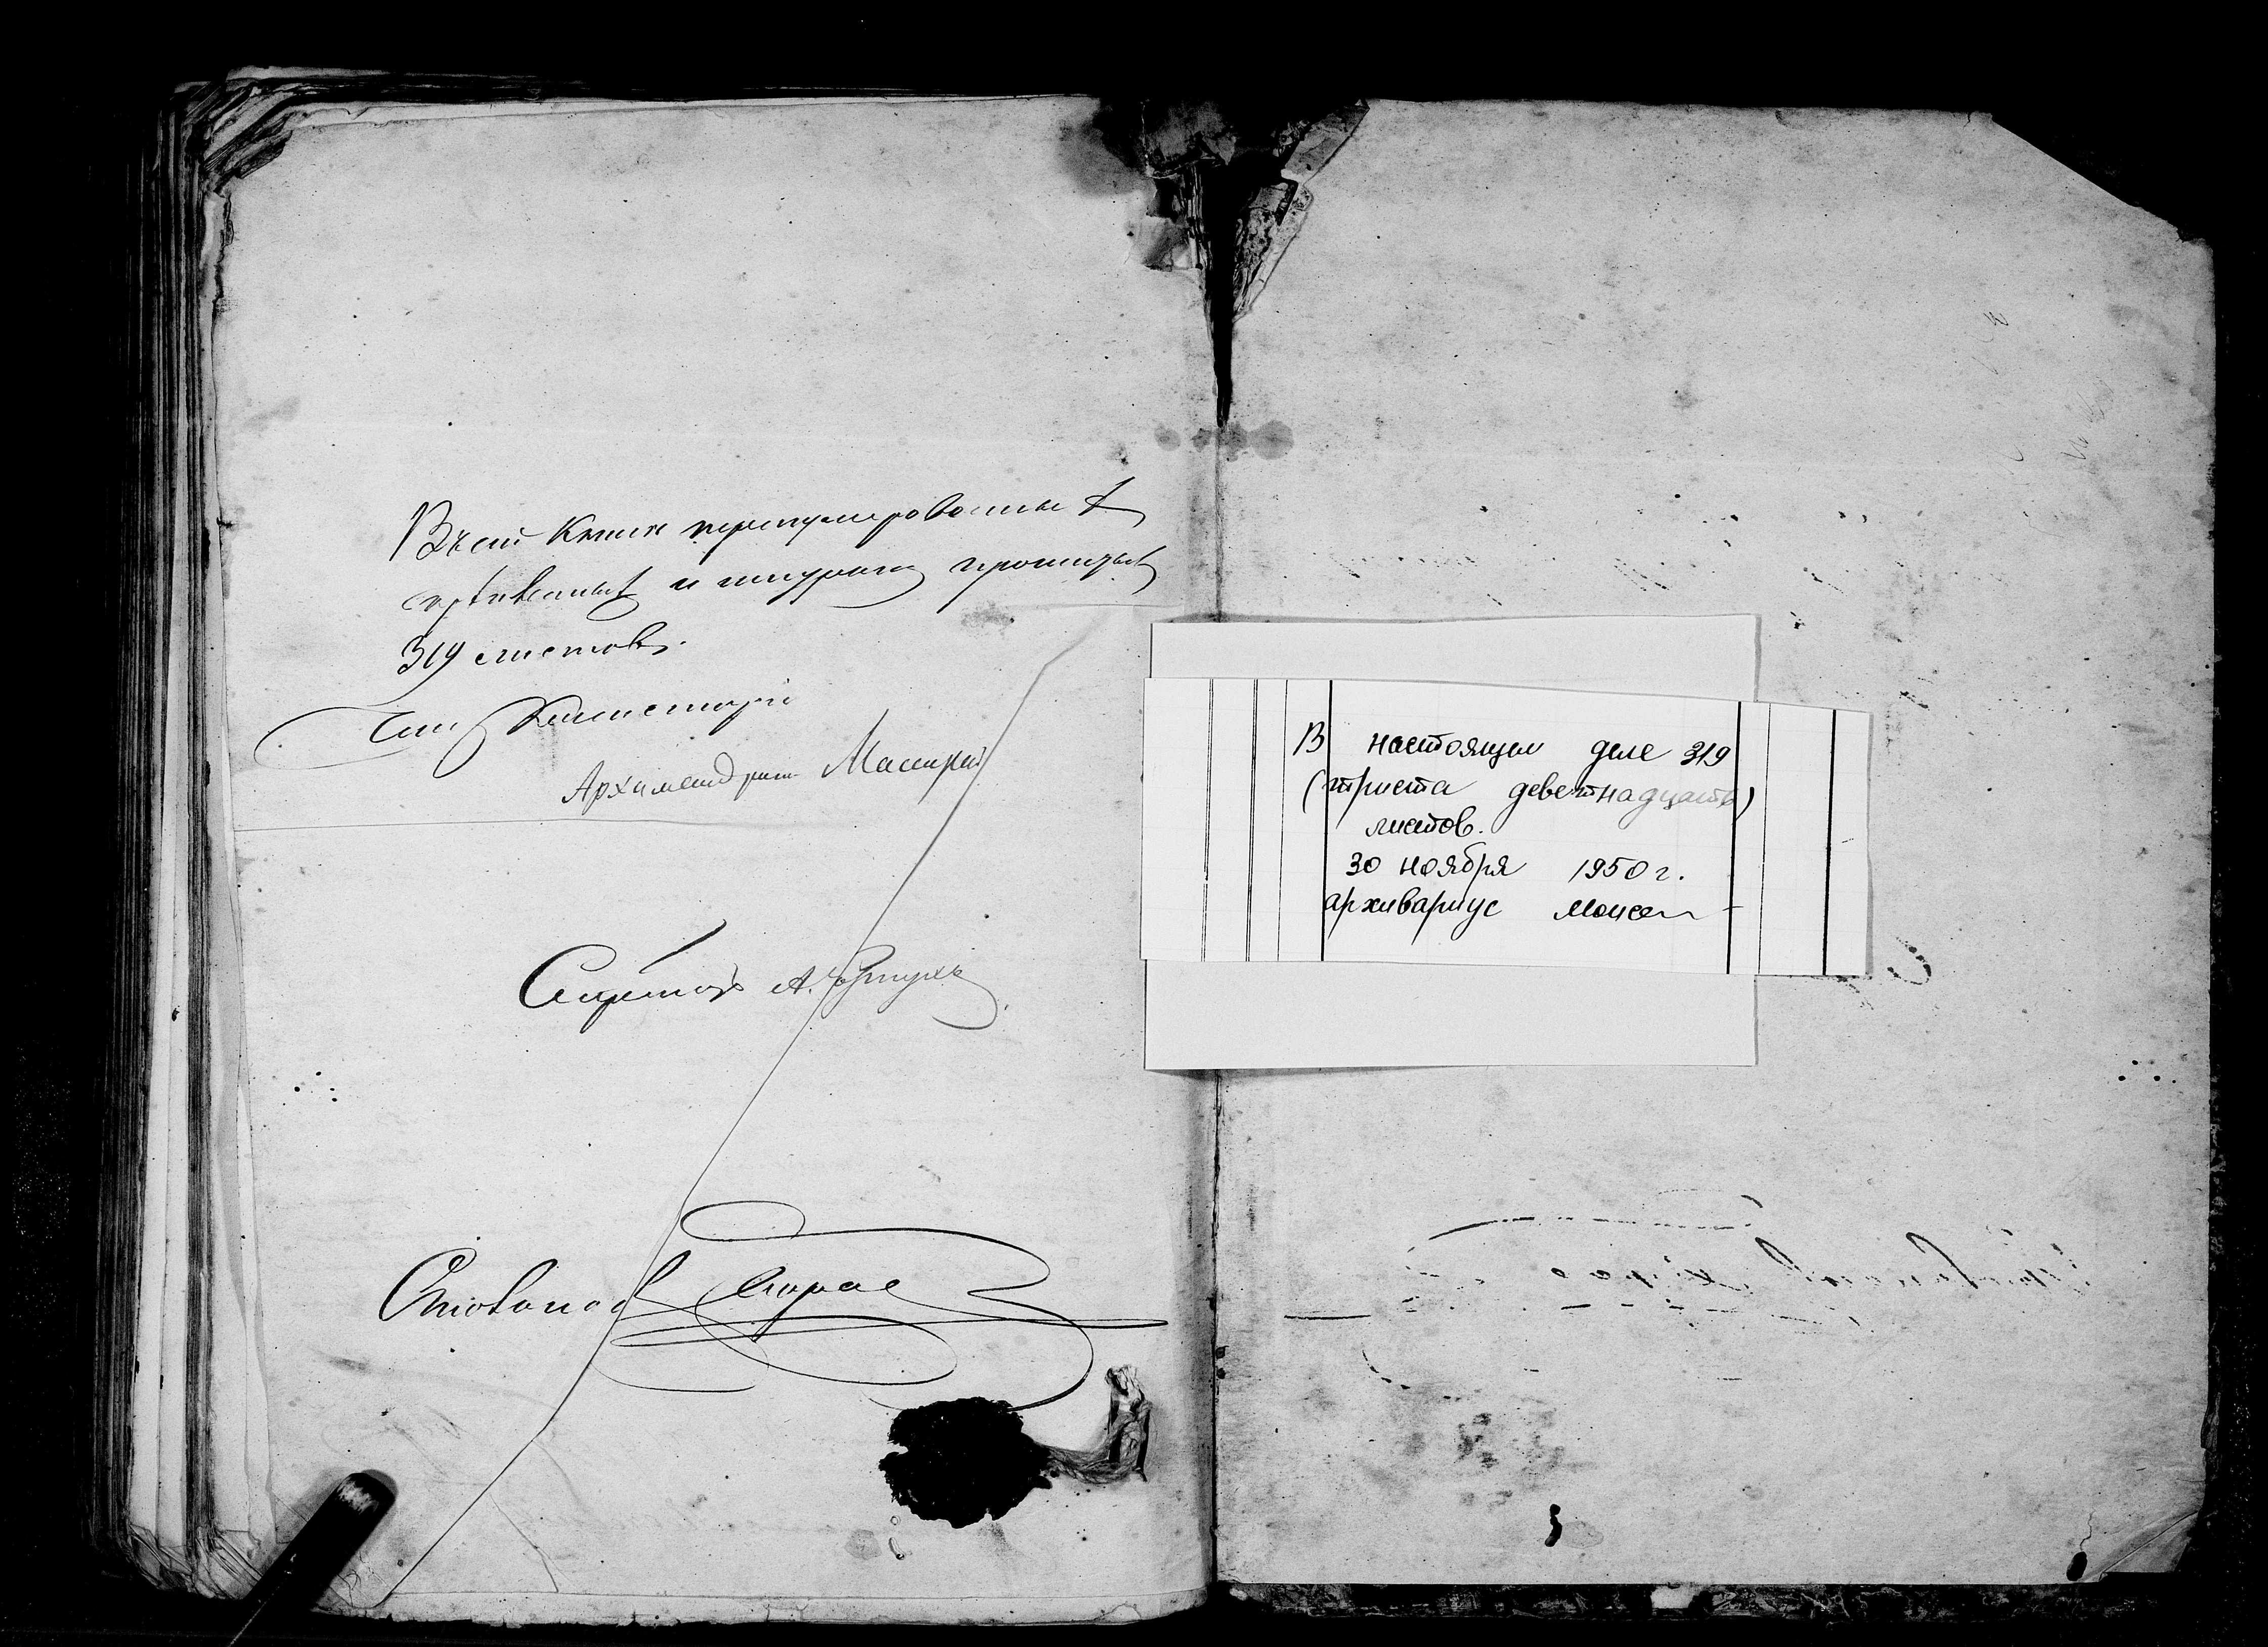 Въ сей Книге перенумерованныхъ
скрѣпленныхъ и шнуромъ прошитыхъ
319 листовъ.
Членъ Консисторіи
Архимандритъ
Секретарь А.
Столоначальник
В настоящем деле 319
(триста девятнадцать)
листов.
30 ноября 1950 г.
архивариус